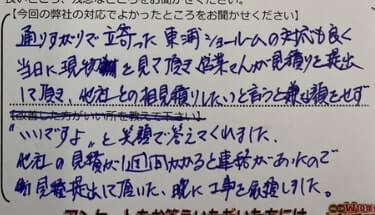 良いところ、残念なところをお聞かせください。
【今回の弊社の対応でよかったところをお聞かせください】
通りすがりで立寄った東浦ショールームの対応も良く
当日に現物を見て頂き営業さんが見積りを提出
して頂き、他社との相見積りしたいと言うと嫌な顔をせず
"いいですよ"と笑顔で答えてくれました。
他社の見積が かかると連絡があったので
見積提出して頂いた、既に工事を依頼しました。
アンケートをお答えいただいた方には